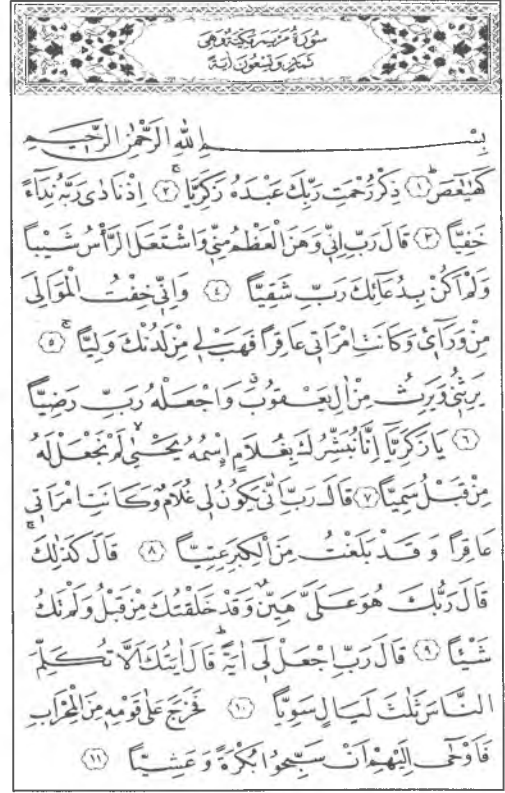 سُورَةُ مَرْيَمَ مَكِّيَّةٌ وَهِيَ
ثَمَانٍ وَتِسْعُونَ اٰيَةً
بِسْمِ اللّٰهِ الرَّحْمٰنِ الرَّح۪يمِ
كٓهٰيٰعٓصٓ ﴿١﴾ ذِكْرُ رَحْمَتِ رَبِّكَ عَبْدَهُ زَكَرِيَّا ﴿٢﴾ اِذْ نَادٰى رَبَّهُ نِدَٓاءً
خَفِيًّا ﴿٣﴾ قَالَ رَبِّ اِنّ۪ي وَهَنَ الْعَظْمُ مِنّ۪ي وَاشْتَعَلَ الرَّأْسُ شَيْبًا
وَلَمْ اَكُنْ بِدُعَٓائِكَ رَبِّ شَقِيًّا ﴿٤﴾ وَاِنّ۪ي خِفْتُ الْمَوَالِيَ
مِنْ وَرَٓائ۪ي وَكَانَتِ امْرَاَت۪ي عَاقِرًا فَهَبْ ل۪ي مِنْ لَدُنْكَ وَلِيًّا ﴿٥﴾
يَرِثُن۪ي وَيَرِثُ مِنْ اٰلِ يَعْقُوبَ وَاجْعَلْهُ رَبِّ رَضِيًّا
﴿٦﴾ يَا زَكَرِيَّٓا اِنَّا نُبَشِّرُكَ بِغُلَامٍ اِسْمُهُ يَحْيٰى لَمْ نَجْعَلْ لَهُ
مِنْ قَبْلُ سَمِيًّا ﴿٧﴾ قَالَ رَبِّ اَنّٰى يَكُونُ ل۪ي غُلَامٌ وَكَانَتِ امْرَاَت۪ي
عَاقِرًا وَقَدْ بَلَغْتُ مِنَ الْكِبَرِ عِتِيًّا ﴿٨﴾ قَالَ كَذٰلِكَ
قَالَ رَبُّكَ هُوَ عَلَيَّ هَيِّنٌ وَقَدْ خَلَقْتُكَ مِنْ قَبْلُ وَلَمْ تَكُ
شَيْـًٔا ﴿٩﴾ قَالَ رَبِّ اجْعَلْ ل۪ٓي اٰيَةً قَالَ اٰيَتُكَ اَلَّا تُكَلِّمَ
النَّاسَ ثَلٰثَ لَيَالٍ سَوِيًّا ﴿١٠﴾ فَخَرَجَ عَلٰى قَوْمِه۪ مِنَ الْمِحْرَابِ
فَاَوْحٰٓى اِلَيْهِمْ اَنْ سَبِّحُوا بُكْرَةً وَعَشِيًّا ﴿١١﴾